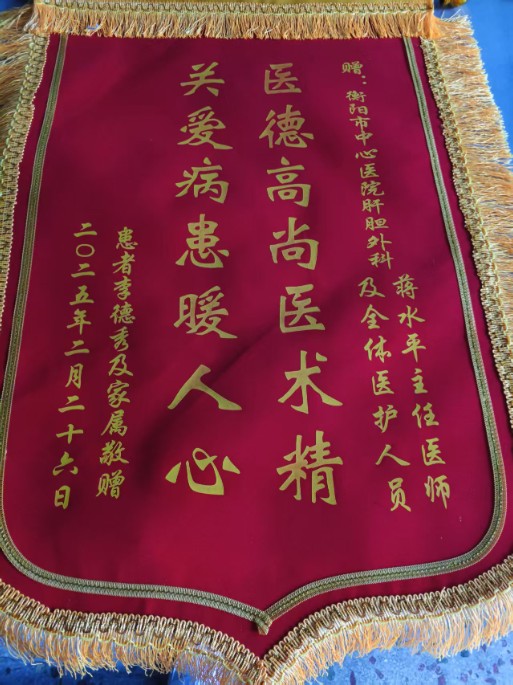 赠：衡阳市中心医院肝胆外科
蒋水平主任医师
及全体医护人员
医德高尚医术精
关爱病患暖人心
患者李德秀及家属敬赠
二〇二五年二月二十六日